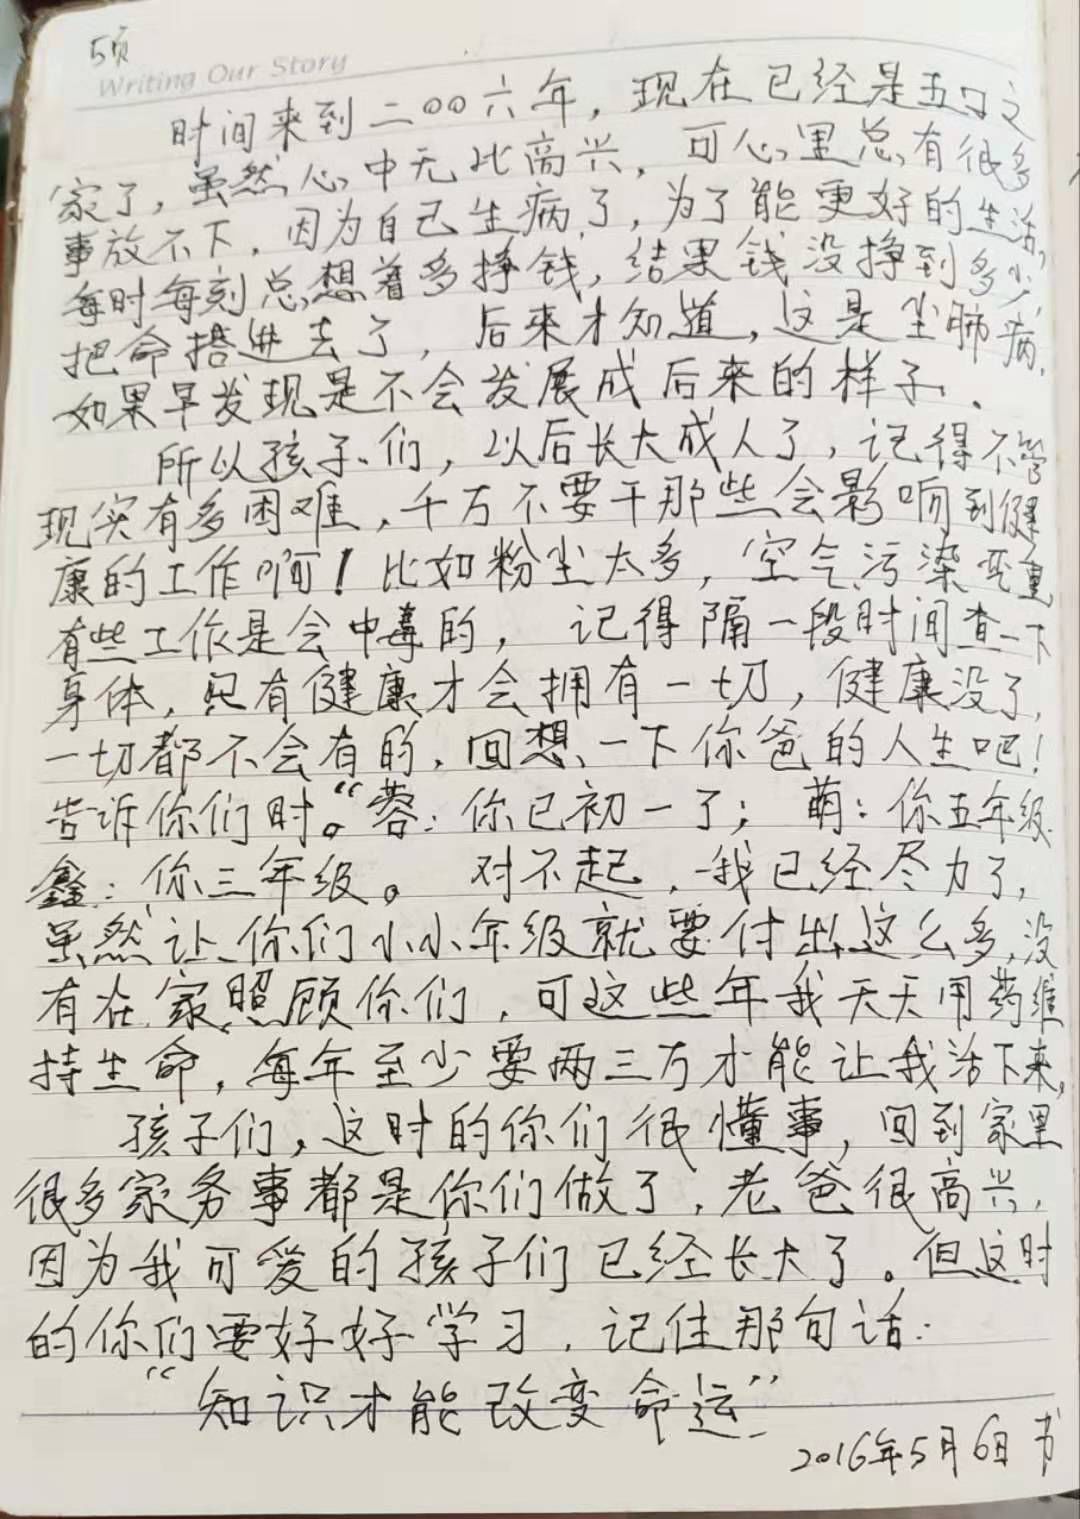 5页
Writing Our Story
时间来到二〇〇六年，现在已经是五口之
家了，虽然心中无比高兴，可心里总有很多
事放不下，因为自己生病了，为了能更好的生活，
每时每刻总想着多挣钱，结果钱没挣到多少，
把命搭进去了，后来才知道，这是尘肺病，
如果早发现是不会发展成后来的样子.
所以孩子们，以后长大成人了，记得不管
现实有多困难，千万不要干那些会影响到健
康的工作啊！比如粉尘太多，空气污染严重
有些工作是会中毒的，记得隔一段时间查一下
身体，只有健康才会拥有一切，健康没了，
一切都不会有的，回想一下你爸的人生吧！
告诉你们时。“蓉：你已初一了；萌：你五年级
鑫：你三年级。对不起，我已经尽力了，
虽然让你们小小年级就要付出这么多，没
有在家照顾你们，可这些年我天天用药维
持生命，每年至少要两三万才能让我活下来，
孩子们，这时的你们很懂事，回到家里
很多家务事都是你们做了，老爸很高兴，
因为我可爱的孩子们已经长大了。但这时
的你们要好好学习，记住那句话：
“知识才能改变命运”
2016年5月6日书